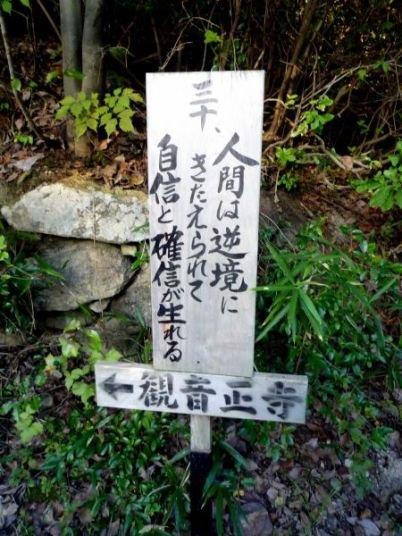 三十、
人間は逆境に
きたえられて
自信と確信が生れる
←観音正寺